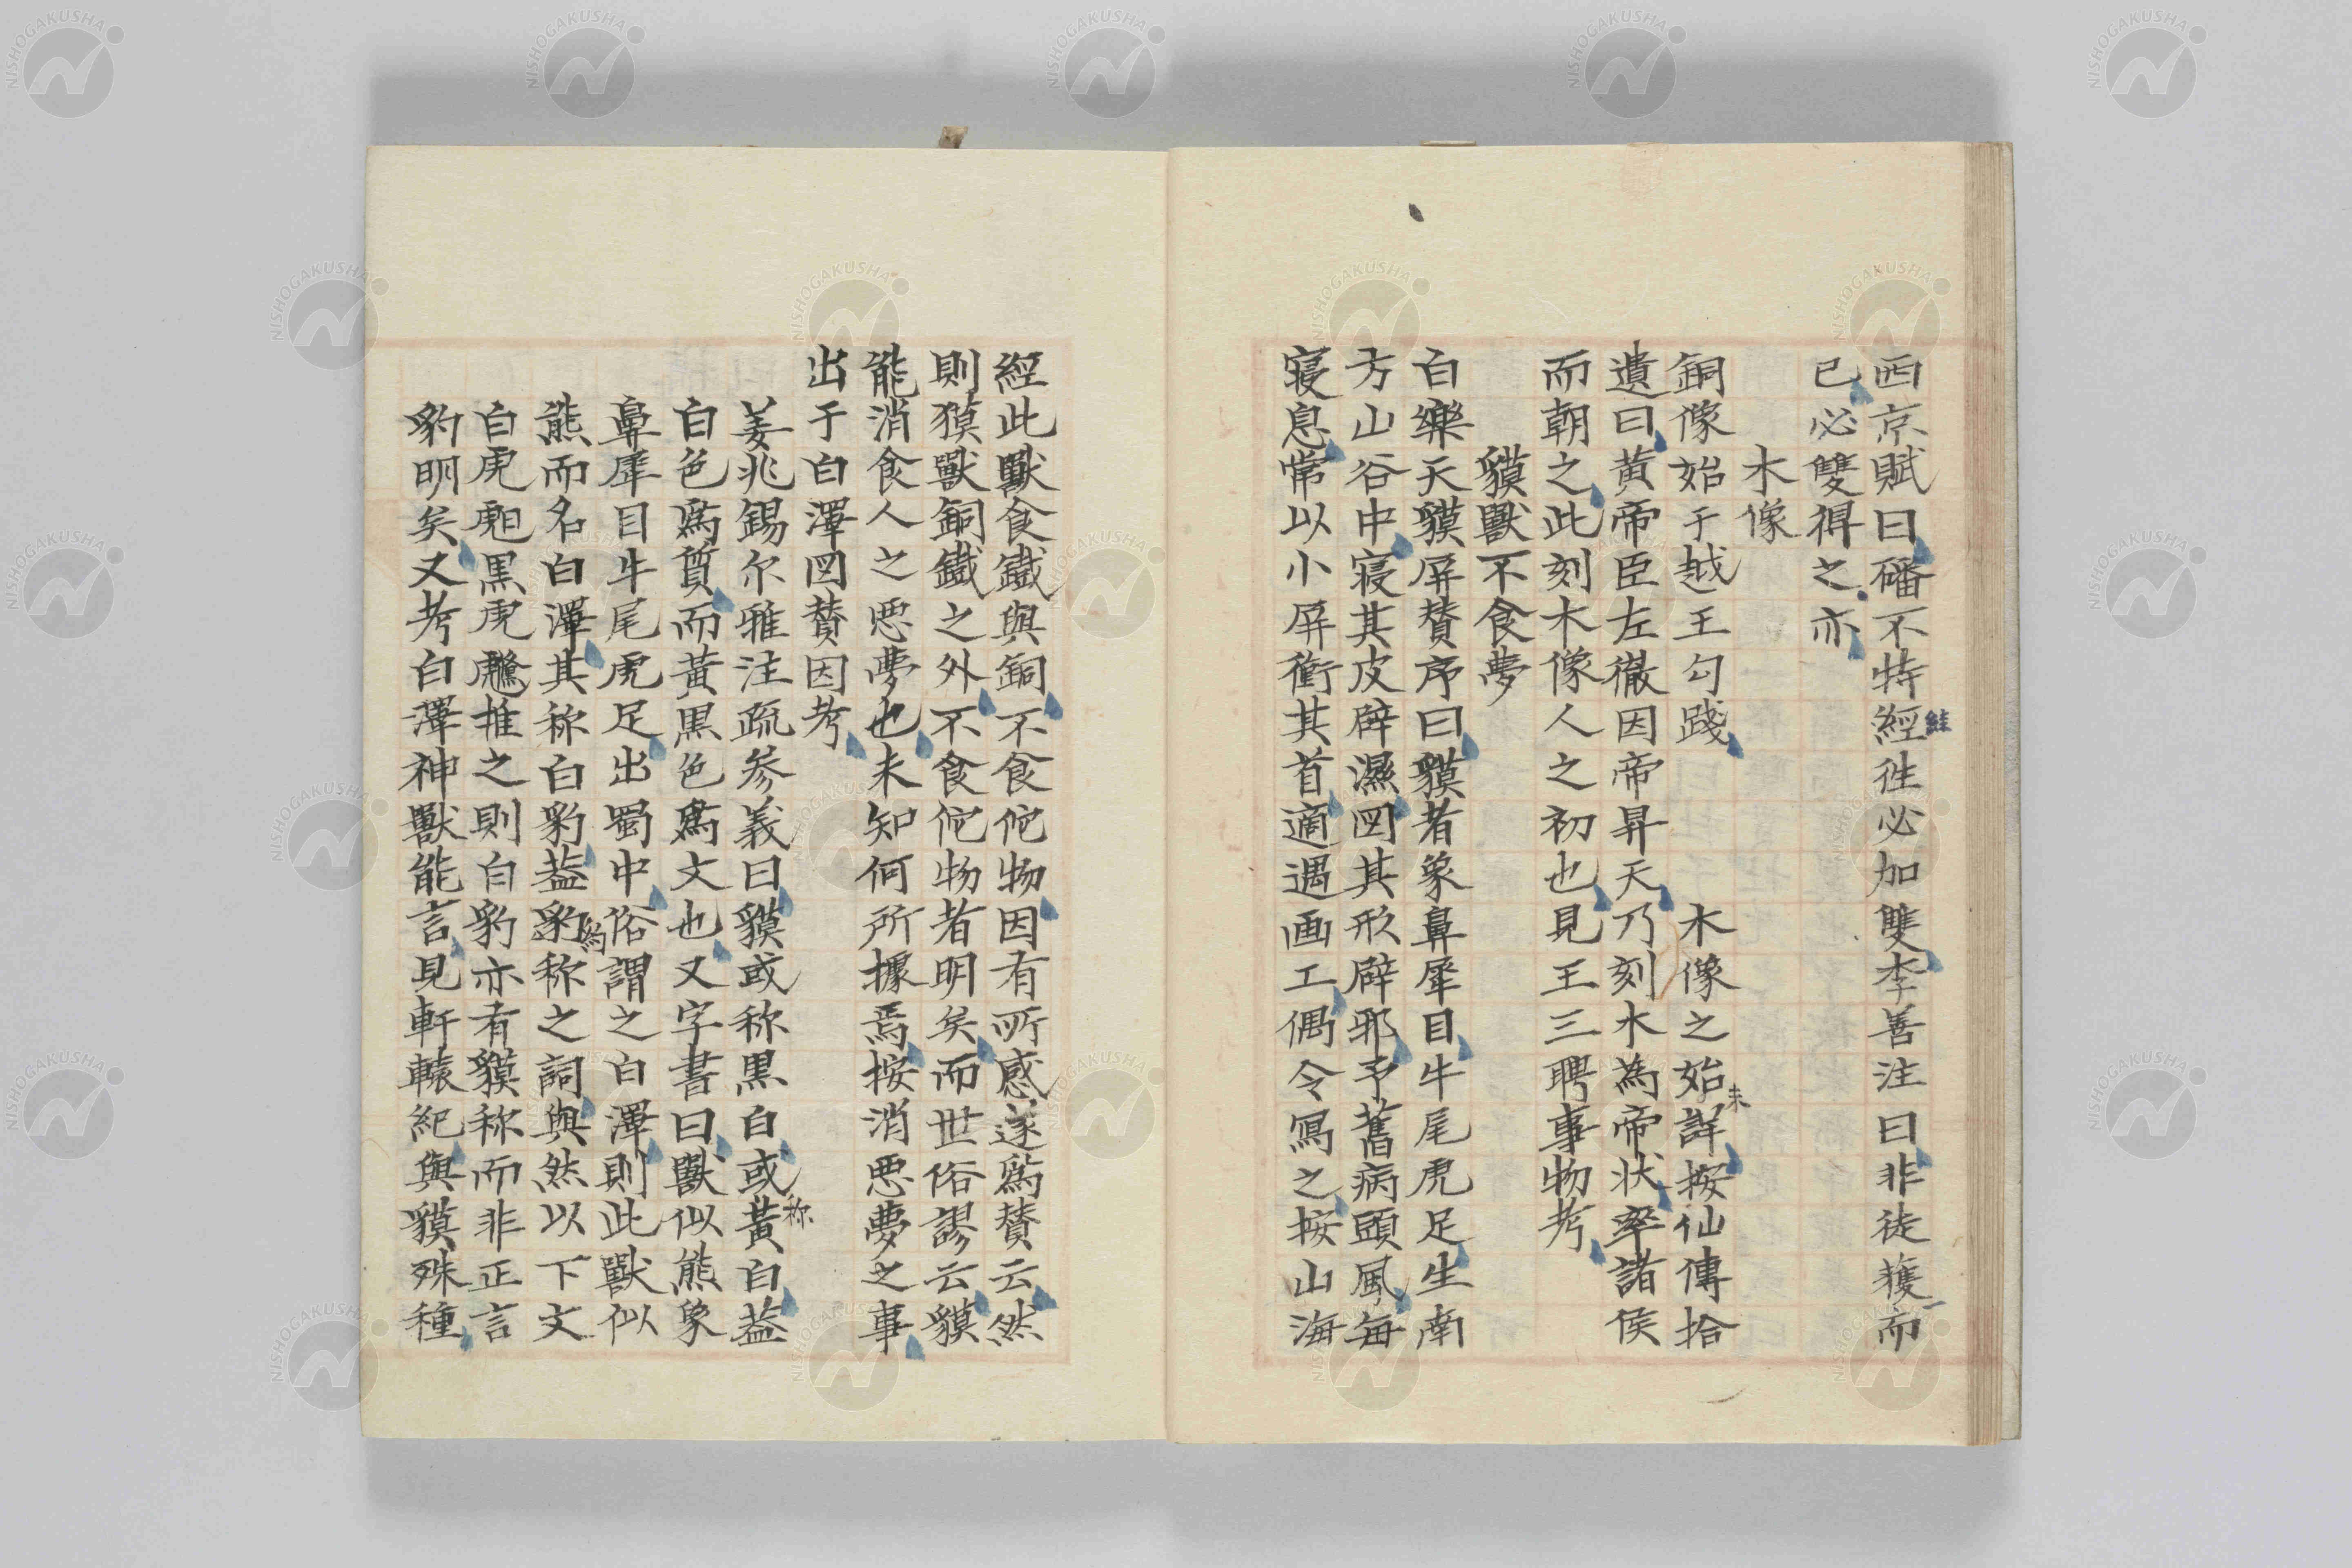 西京賦曰磻不特絓往必加雙李善注曰非徒獲一而
已必雙得之亦
木像
銅像始于越王勾踐木像之始未詳按仙傳拾
遺曰黄帝臣左徹因帝昇天乃刻木為帝状率諸侯
而朝之此刻木像人之初也見王三聘事物考
貘獸不食夢
白樂天貘屏賛序曰貘者象鼻犀目牛尾虎足生南
方山谷中寝其皮辟濕図其形辟邪予舊病頭風每
寝息常以小屏衝其首適遇画工偶令寫之按山海
經此獸食鐵與銅不食佗物因有所感遂爲賛云然
則貘獸銅鐵之外不食佗物者明矣而世俗謬云貘
能消食人之悪夢也未知何所據焉按消悪夢之事
出于白澤図賛因考
姜兆錫尔雅注疏参義曰貘或称黒白或称黃白盖
白色爲質而黃黒色爲文也又字書曰獸似熊象
鼻犀目牛尾虎足出蜀中俗謂之白澤則此獸似
熊而名白澤其称白豹盖豹称之詞與然以下文
白虎甝黒虎虪推之則白豹亦有貘称而非正言
豹明矣又考白澤神獸能言見軒轅紀與貘殊種